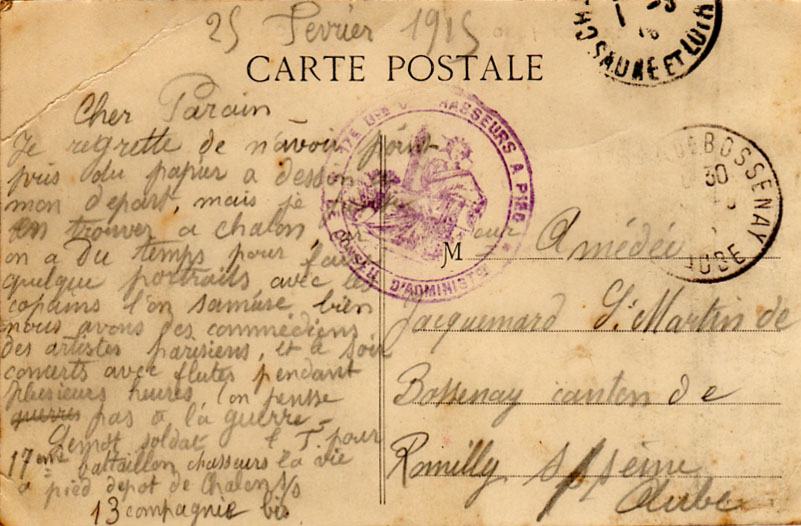 25 Fevrier 1915
CARTE POSTALE
Cher Parain
Je regrette de n'avoir point
pris du papier a dessin
mon depart, mais je
en trouver a chalon
on a du temps pour faire
quelque portraits, avec les
copains l'on samuse bien
nous avons des commédiens
des artistes parisiens, et a soir
conserts avec flutes pendant
plusieurs heures, l'on pense
guerres pas a la guerre
soldat l T. pour
17eme battaillon chasseurs la vie
a pied depot de Chalon s/s
13 compagnie bis
M eur Amédée
Jacquemard St Martin de
Bossenay canton de
Romilly s/seine
Aube
CHASSEURS A PIED
D'ADMINISTR
SAONE ET LOIRE
DE BOSSENAY
30
AUBE